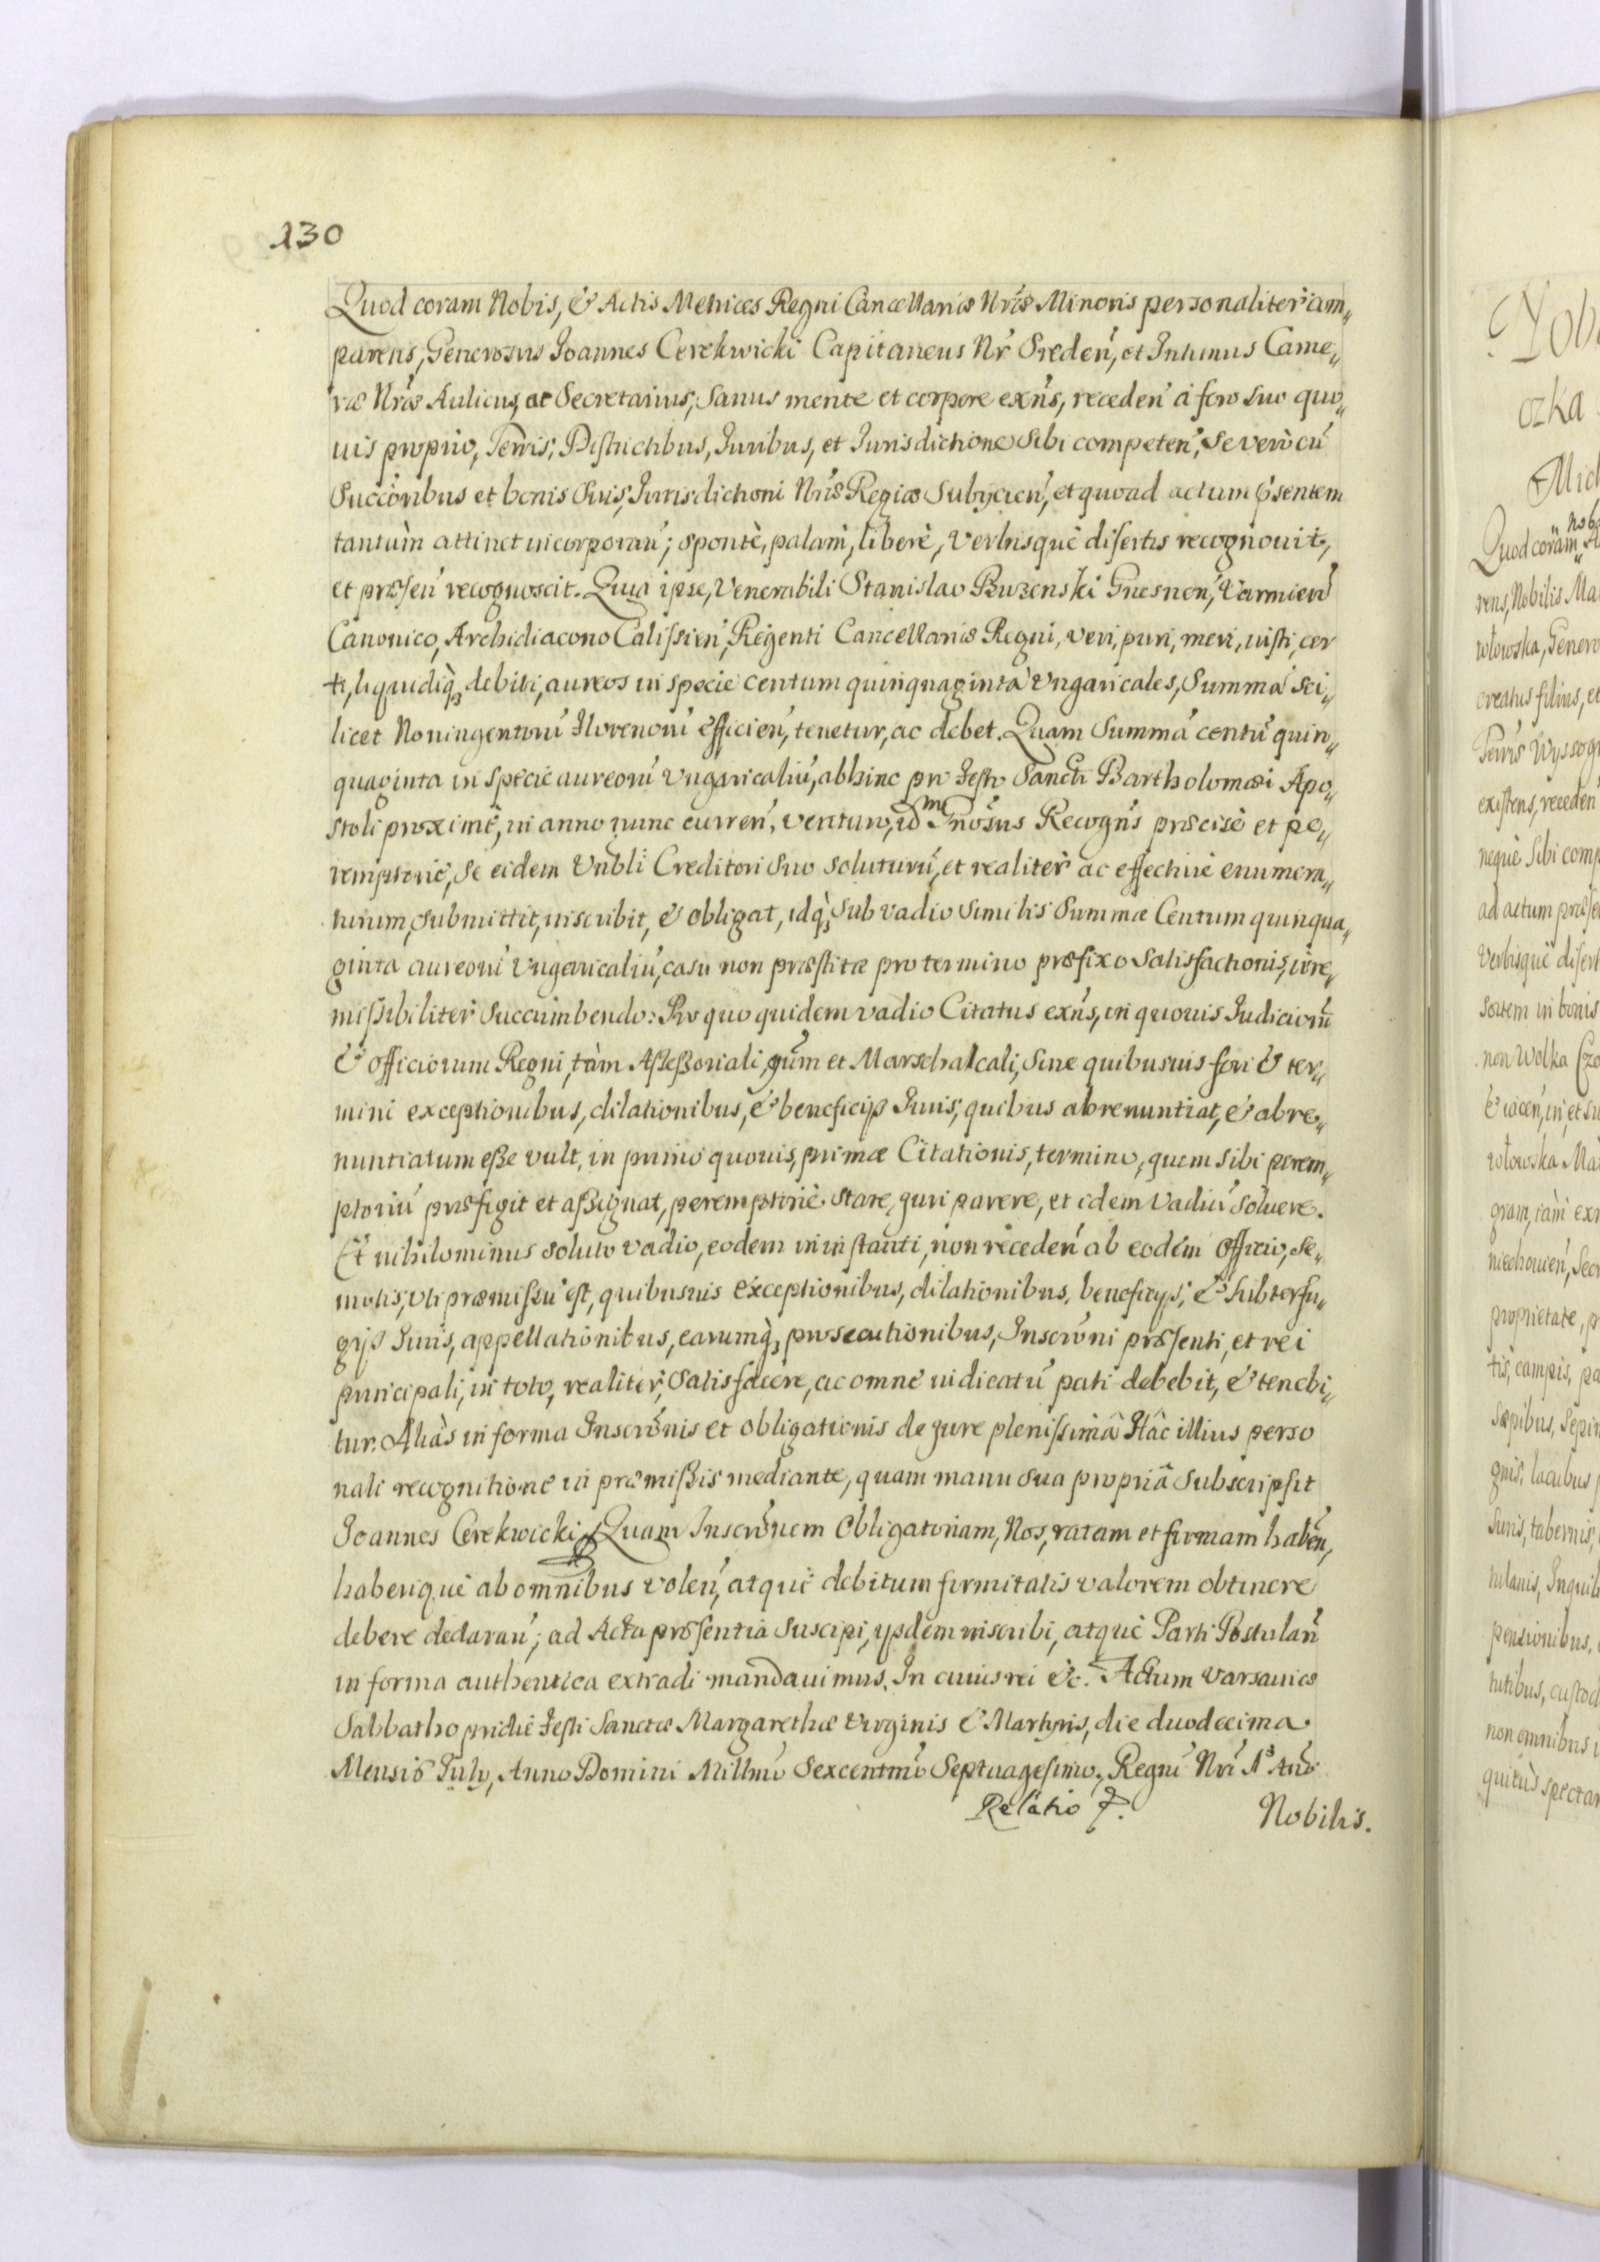 130
Quod coram Nobis, & Actis Metrices Regni Cancellariæ Nræ Minoris personaliter com„
parens, Generosus Joannes Cerekwicki Capitaneus Nr̃ Sreden̄, et Intimus Came„
ræ Nræ Aulicus, ac Secretarius, Sanus mente et corpore exn̄s, receden̄ à foro suo quo„
uis proprio, Terris, Districtibus, Juribus, et Jurisdictione Sibi competen̄, Se verò cū
Succōribus et bonis Suis, Jurisdictioni Nræ Regiæ Subijcien̄, et quoad actum p̄sentem
tantùm attinet incorporan̄; spontè, palàm, liberè, Verbisquè disertis recognouit,
et præsen̄ recognoscit. Quia ipse, Venerabili Stanislao Buzenski Gnesnen̄, Varmien̄
Canonico, Archidiacono Calissien̄, Regenti Cancellariæ Regni, veri, puri, meri, iusti, cer
ti, liquidiq̢, debiti, aureos in specie centum quinquaginta Vngaricales, Summā sci„
licet Noningentorū Florenorū efficien̄, tenetur, ac debet. Quam Summā centū quin„
quaginta in specie aureorū Vngaricaliū, abhinc pro Festo Sancti Bartholomæi Apo„
stoli proximè, in anno nunc curren̄, venturo, idm Gnōsus Recogn̄s præcisè et pe„
remptoriè, Se eidem Vnbli Creditori Suo soluturū, et realiter ac effectiuè enumera„
turum, submittit, inscribit, & obligat, idq̢ sub vadio Similis Summæ Centum quinqua„
ginta aureorū Vngaricaliū, casu non præstitæ pro termino præfixo Satisfactionis, irre„
missibiliter Succumbendo: Pro quo quidem vadio Citatus exn̄s, in quouis Judiciorū
& officiorum Regni, tàm Assessoriali, quàm et Marschalcali, Sine quibusuis fori & ter„
mini exceptionibus, dilationibus, & beneficijs Juris, quibus abrenuntiat, & abre„
nuntiatum esse vult, in primo quouis, primæ Citationis, termino, quem sibi perem„
ptoriū præfigit et assignat, peremptoriè Stare, juri parere, et idem Vadiū soluere.
Et nihilominus soluto vadio, eodem in instanti, non receden̄ ab eodem Officio, Se„
motis, vti præmissū est, quibusuis exceptionibus, dilationibus, beneficijs, & Subterfu„
gijs Juris, appellationibus, earumq̢ prosecutionibus, Inscrōni præsenti, et rei
principali, in toto, realiter, Satisfacere, ac omne iudicatū pati debebit, & tenebi„
tur. Aliàs in forma Inscrōnis et obligationis de jure plenissimâ Hâc illius perso
nali recognitione in præmissis mediante, quam manu sua propriâ subscripsit
Joannes Cerekwicki Quam Inscrōnem Obligatoriam, Nos, ratam et firmam haben̄,
haberiquè ab omnibus volen̄, atquè debitum firmitatis valorem obtinere
debere declaran̄; ad Acta præsentia Suscipi, ijsdem inscribi, atquè Parti Postulan̄
in forma authentica extradi mandauimus. In cuius rei &c. Actum Varsauiæ
Sabbatho pridiè Festi Sanctæ Margarethæ Virginis & Martyris, die duodecima
Mensis July, Anno Domini Millmo Sexcentmo Septuagesimo, Regni Nri 1o Anno
Relatio
Nobilis.